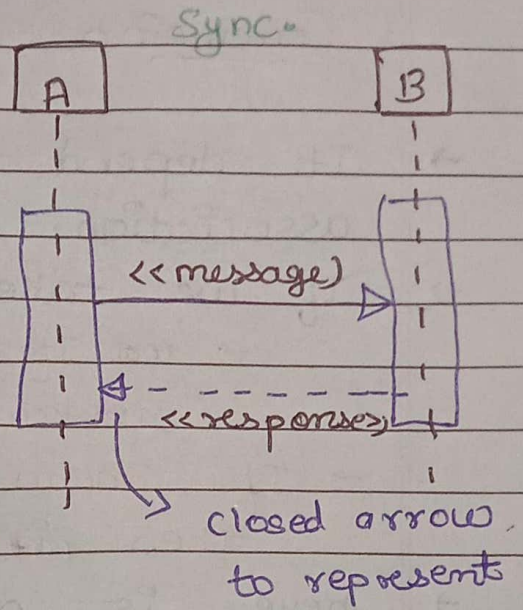 Sync.
A
B
<<message>
<<response>>
closed arrow.
to represent